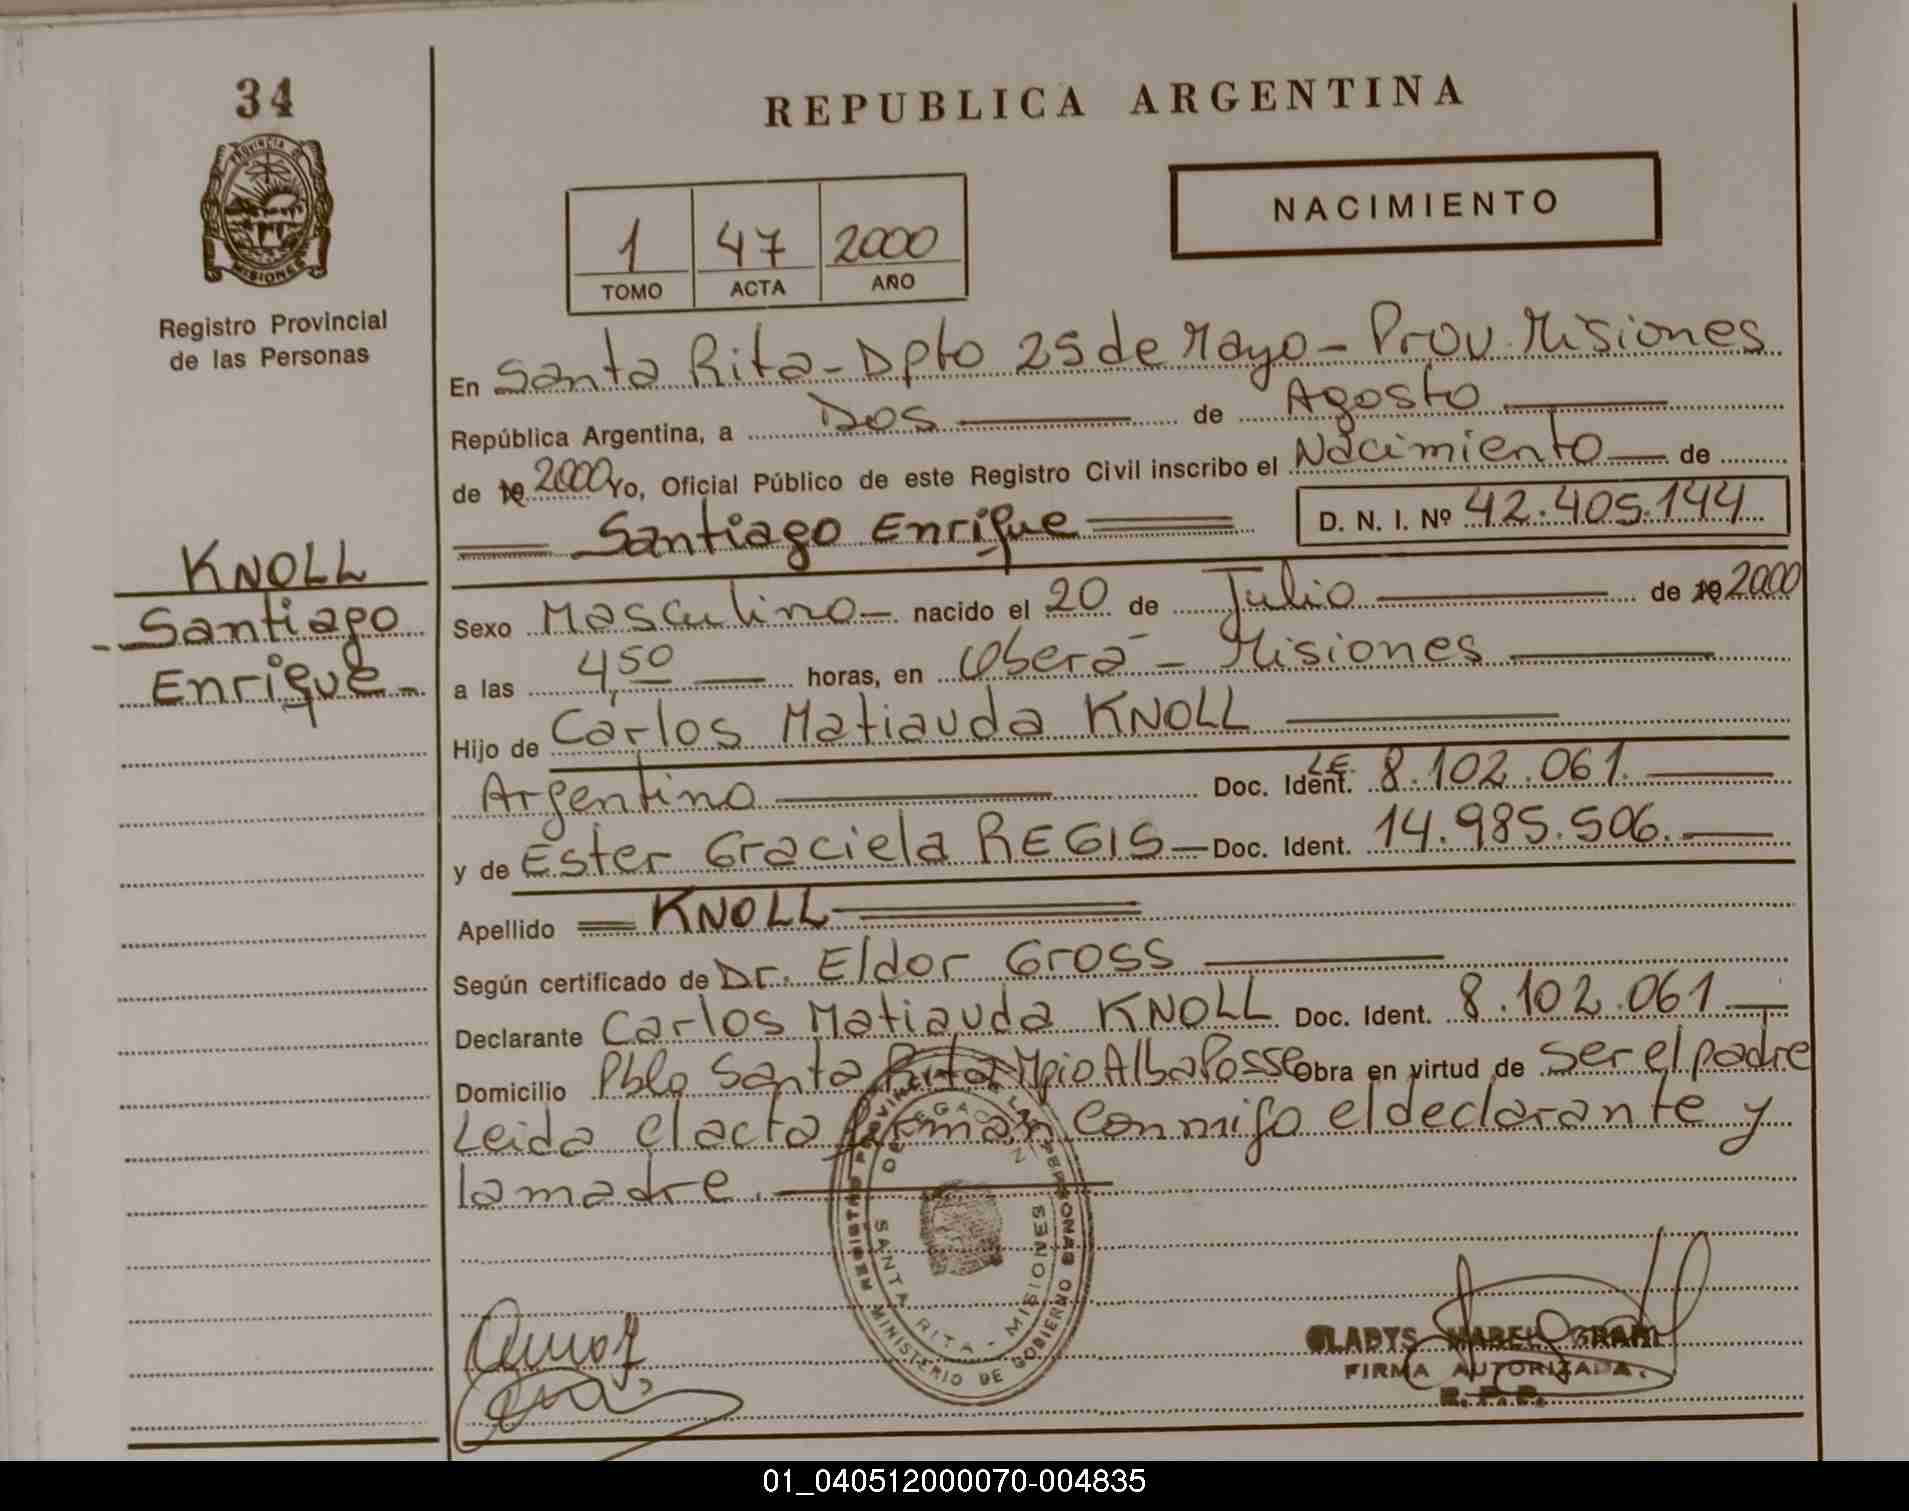 34
PROVINCIA DE
MISIONES
Registro Provincial
de las Personas
KNOLL
Santiago
Enrique
REPUBLICA ARGENTINA
NACIMIENTO
1 47 2000
TOMO ACTA AÑO
En Santa Rita - Dpto 25 de Mayo - Prov. Misiones
República Argentina, a Dos de Agosto
de 19 2000 Yo, Oficial Público de este Registro Civil inscribo el Nacimiento de
Santiago Enrique D. N. I. Nº 42.405.144
Sexo Masculino nacido el 20 de Julio de 19 2000
a las 4,50 horas, en Oberá - Misiones
Hijo de Carlos Matiauda KNOLL
Argentino Doc. Ident. L.E. 8.102.061.
y de Ester Graciela REGIS Doc. Ident. 14.985.506.
Apellido KNOLL
Según certificado de Dr. Eldor Gross
Declarante Carlos Matiauda KNOLL Doc. Ident. 8.102.061
Domicilio Pblo Santa Rita Mpio Alba Posse Obra en virtud de ser el padre
Leida el acta firman conmigo el declarante y
la madre.
REGISTRO PROVINCIAL DE LAS PERSONAS
DELEGACION
SANTA RITA - MISIONES
MINISTERIO DE GOBIERNO
GLADYS MABEL
FIRMA AUTORIZADA.
R.P.P.
01_040512000070-004835